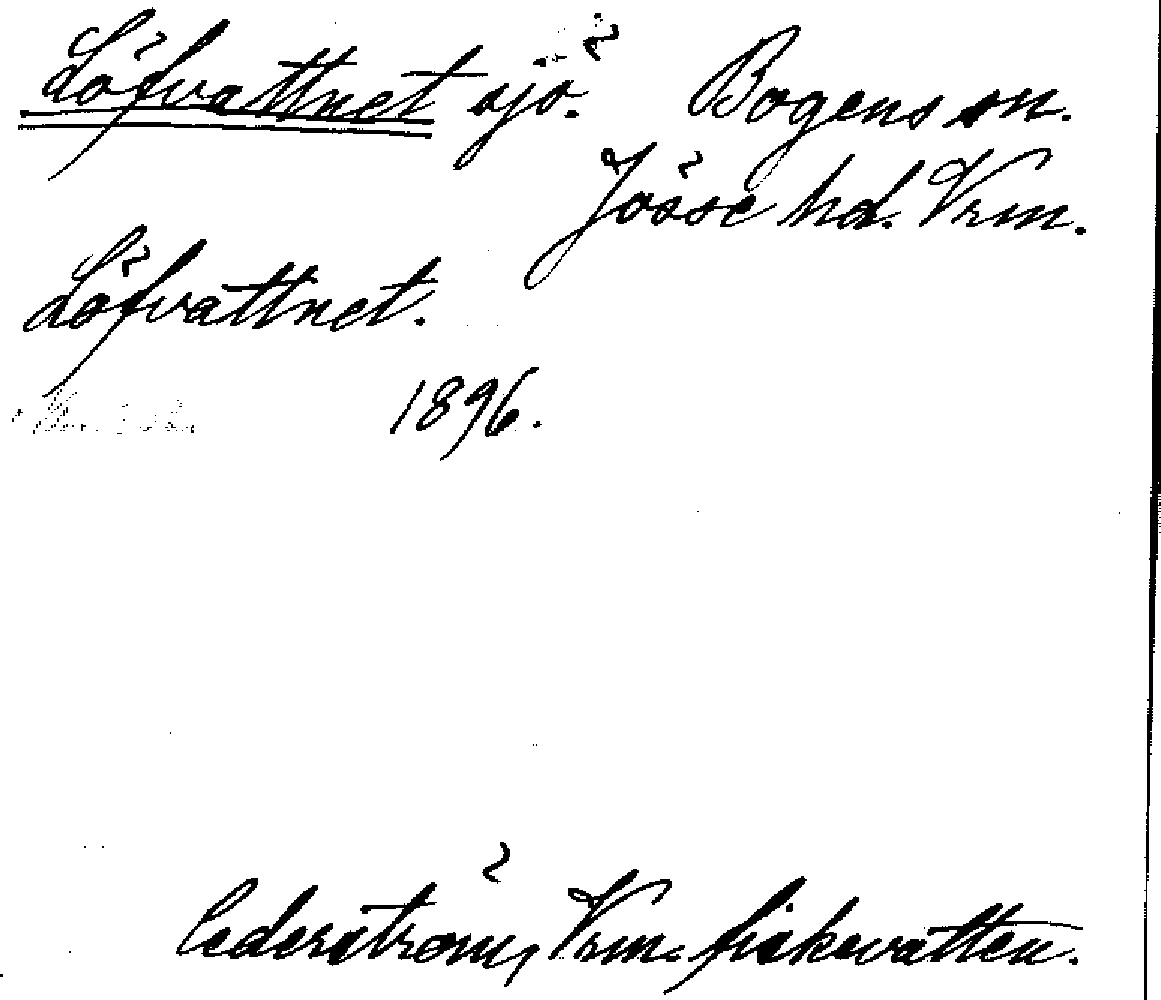 Löfvattnet sjö. Bogens sn.
Jösse hd. Vrm.
Löfvattnet.
1896.
Cederström, Vrm. fiskevatten.